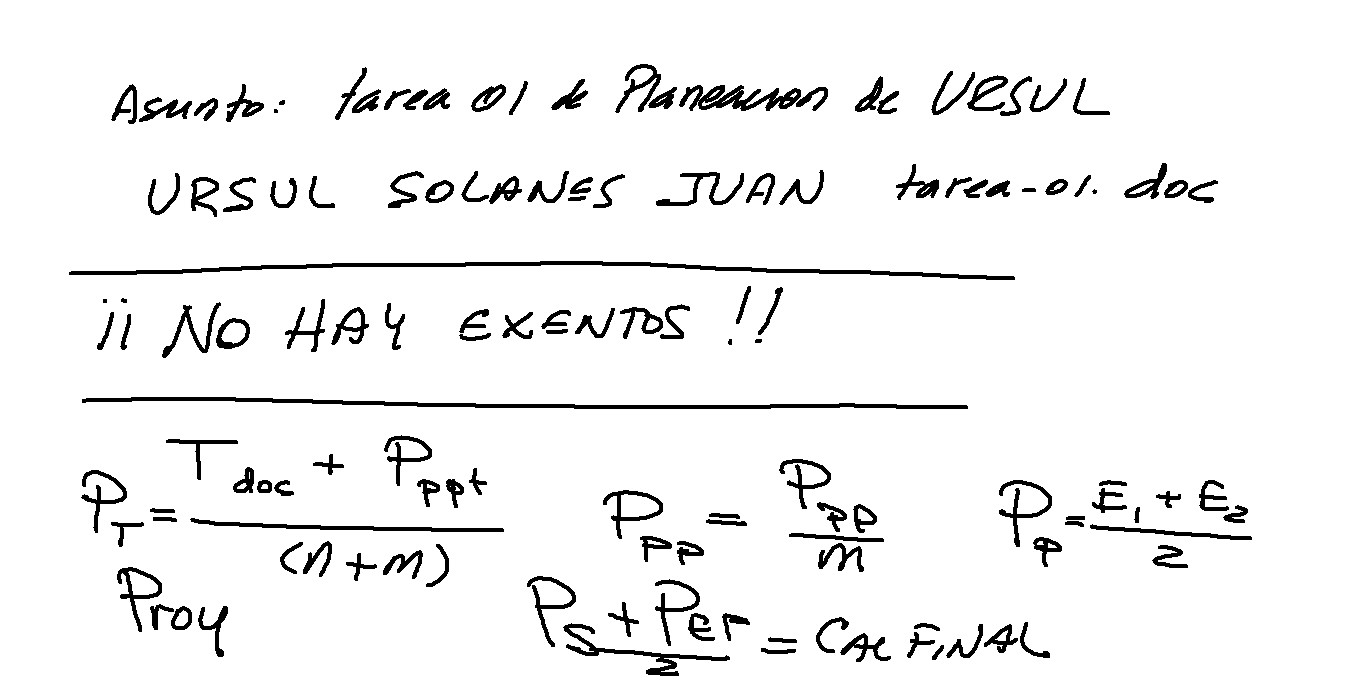 Asunto: tarea 01 de Planeacion de URSUL
URSUL SOLANES JUAN tarea-01.doc
¡¡ NO HAY EXENTOS !!
P_T = (T_doc + P_ppt) / (n+m)   P_pp = P_pp / m   P_p = (E_1 + E_2) / 2
Proy   (P_S + P_EF) / 2 = CAL FINAL